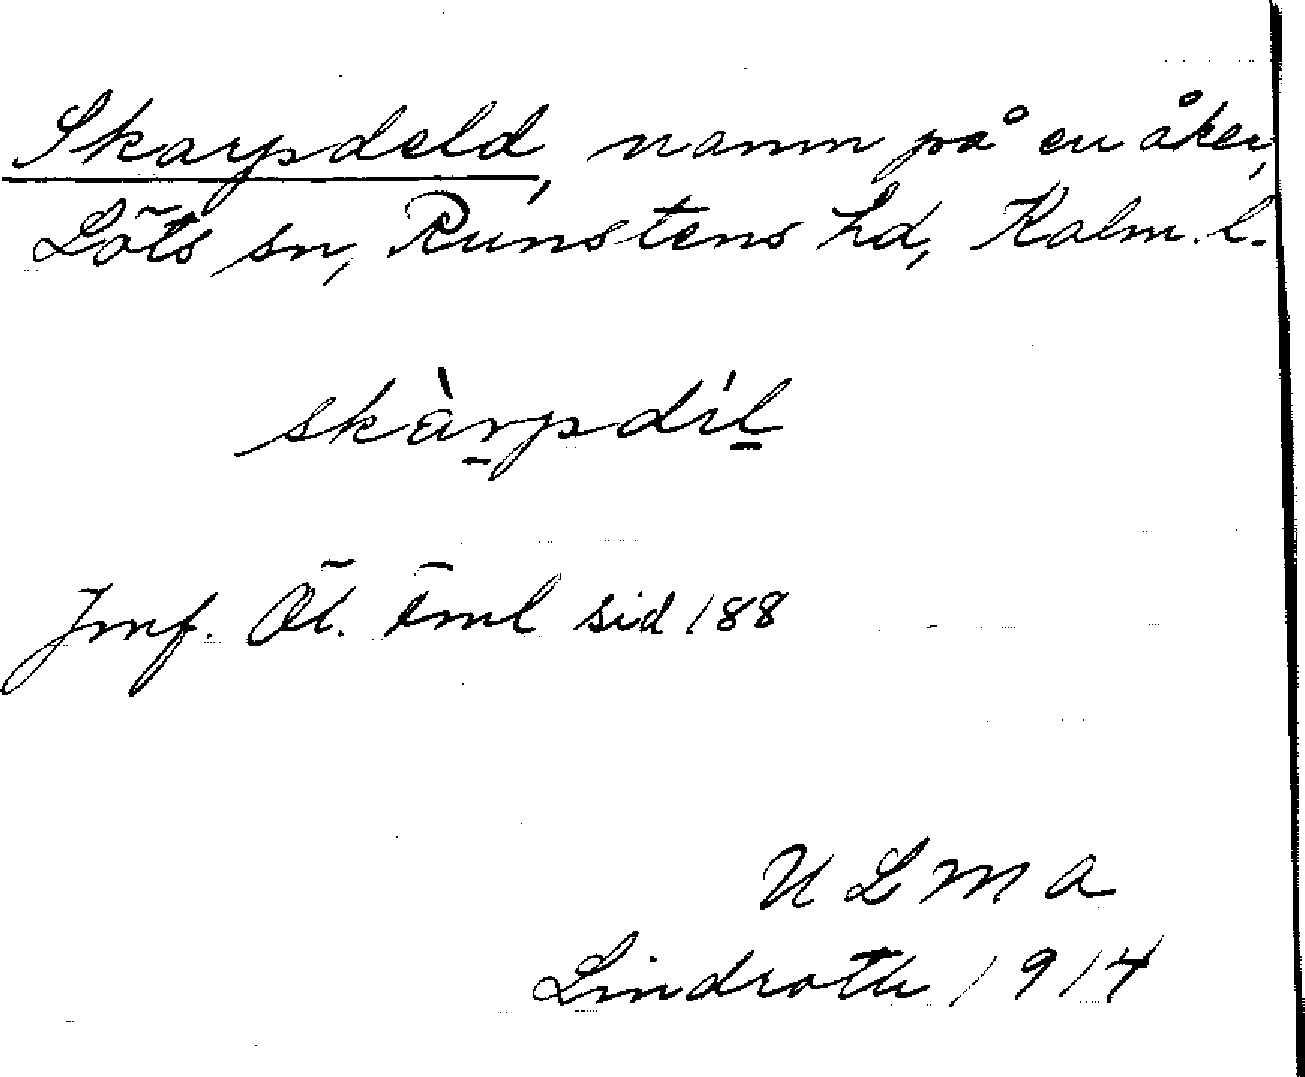 Skarpdeld, namn på en åker,
Löts sn, Runstens hd, Kalm. l.
skàrpdíl
Jmf. Öl. sid 188
ULMA
Lindroth 1914